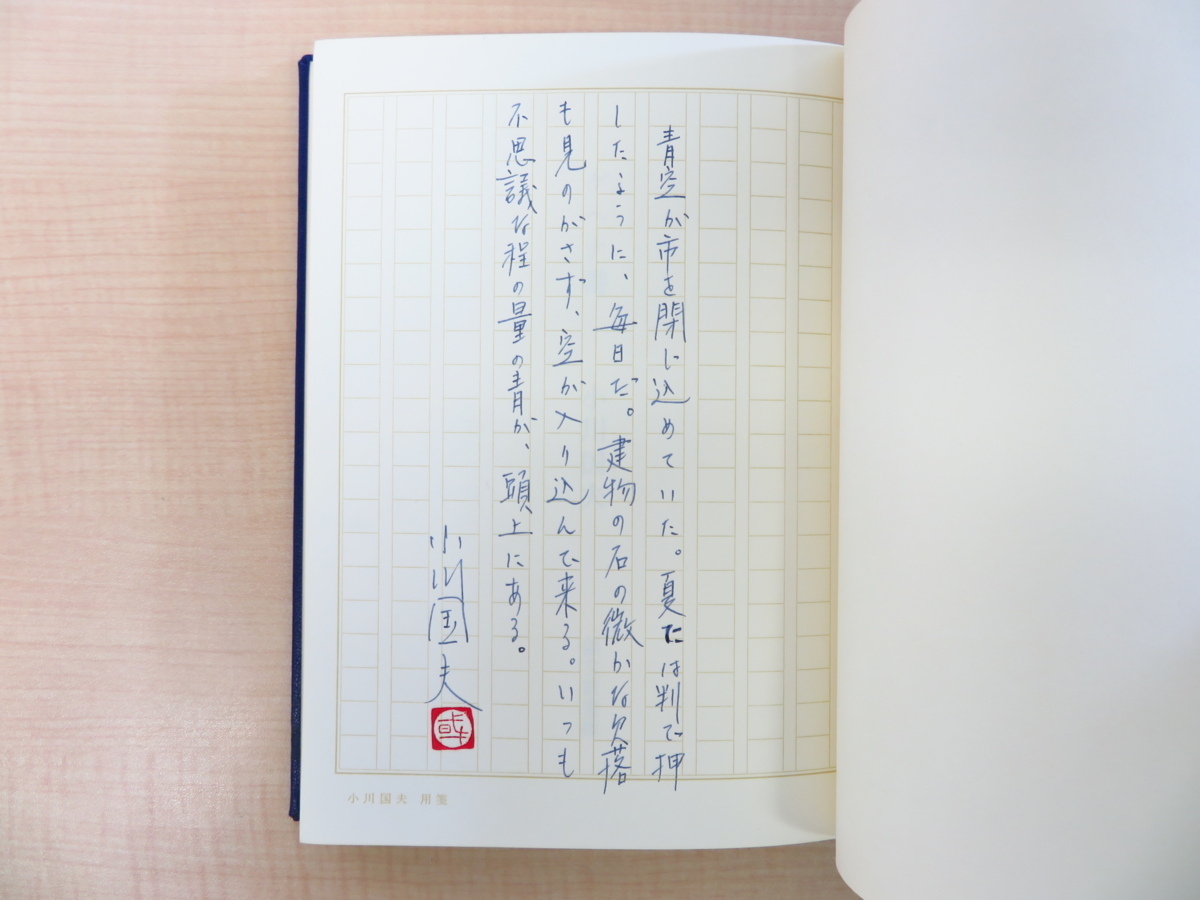 青空が市を閉じ込めていた。夏には判で押
したように、毎日だ。建物の石の微かな欠落
も見のがさず、空が入り込んで来る。いつも
不思議な程の量の青が、頭上にある。
小川国夫
小川国夫 用箋